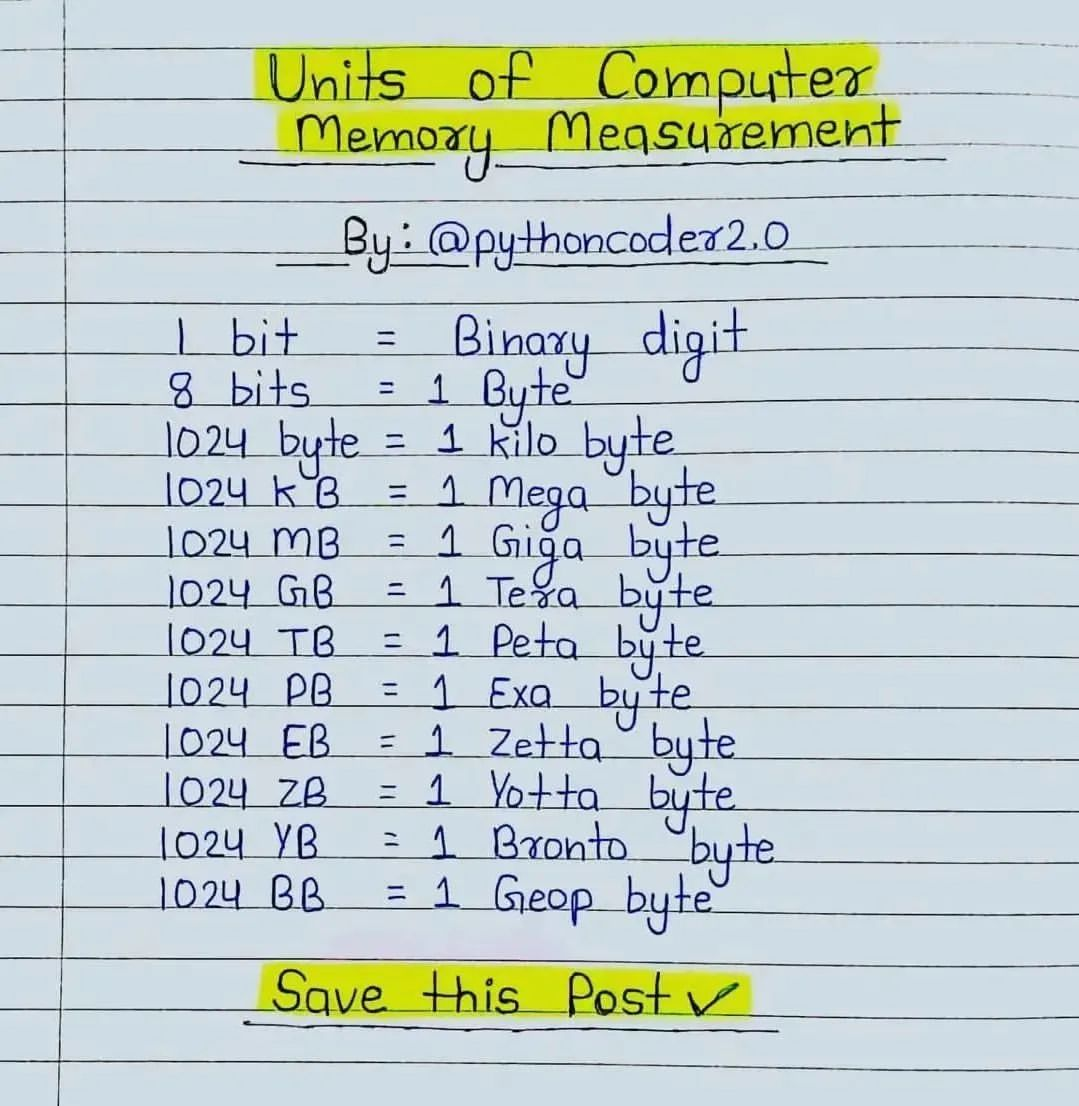 Units of Computer
Memory Measurement
By: @pythoncoder2.0
1 bit = Binary digit
8 bits = 1 Byte
1024 byte = 1 kilo byte
1024 KB = 1 Mega byte
1024 MB = 1 Giga byte
1024 GB = 1 Tera byte
1024 TB = 1 Peta byte
1024 PB = 1 Exa byte
1024 EB = 1 Zetta byte
1024 ZB = 1 Yotta byte
1024 YB = 1 Bronto byte
1024 BB = 1 Geop byte
Save this Post ✓